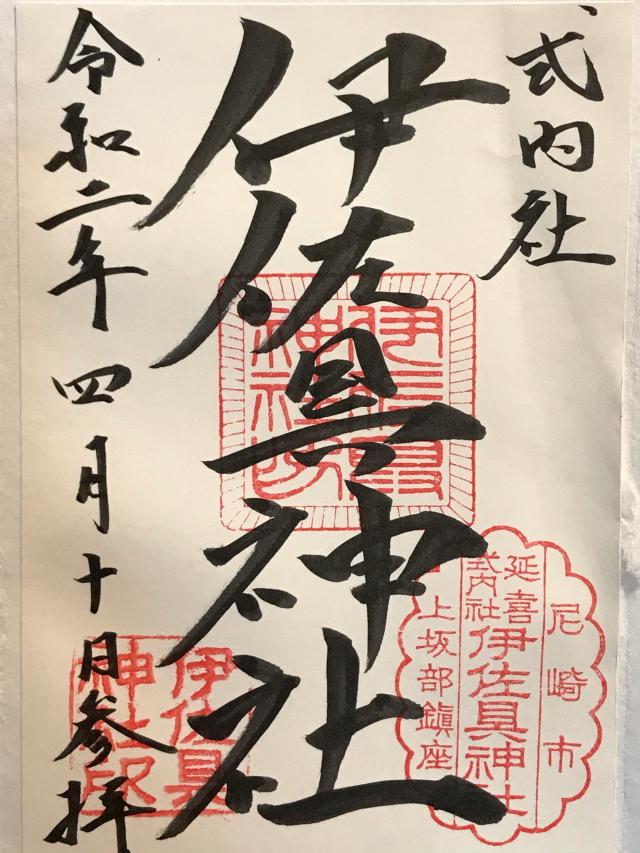 式内社
伊佐具神社
令和二年四月十日参拝
伊佐具
神社印
尼崎市
延喜
式内社
伊佐具神社
上坂部鎮座
伊佐具
神社印